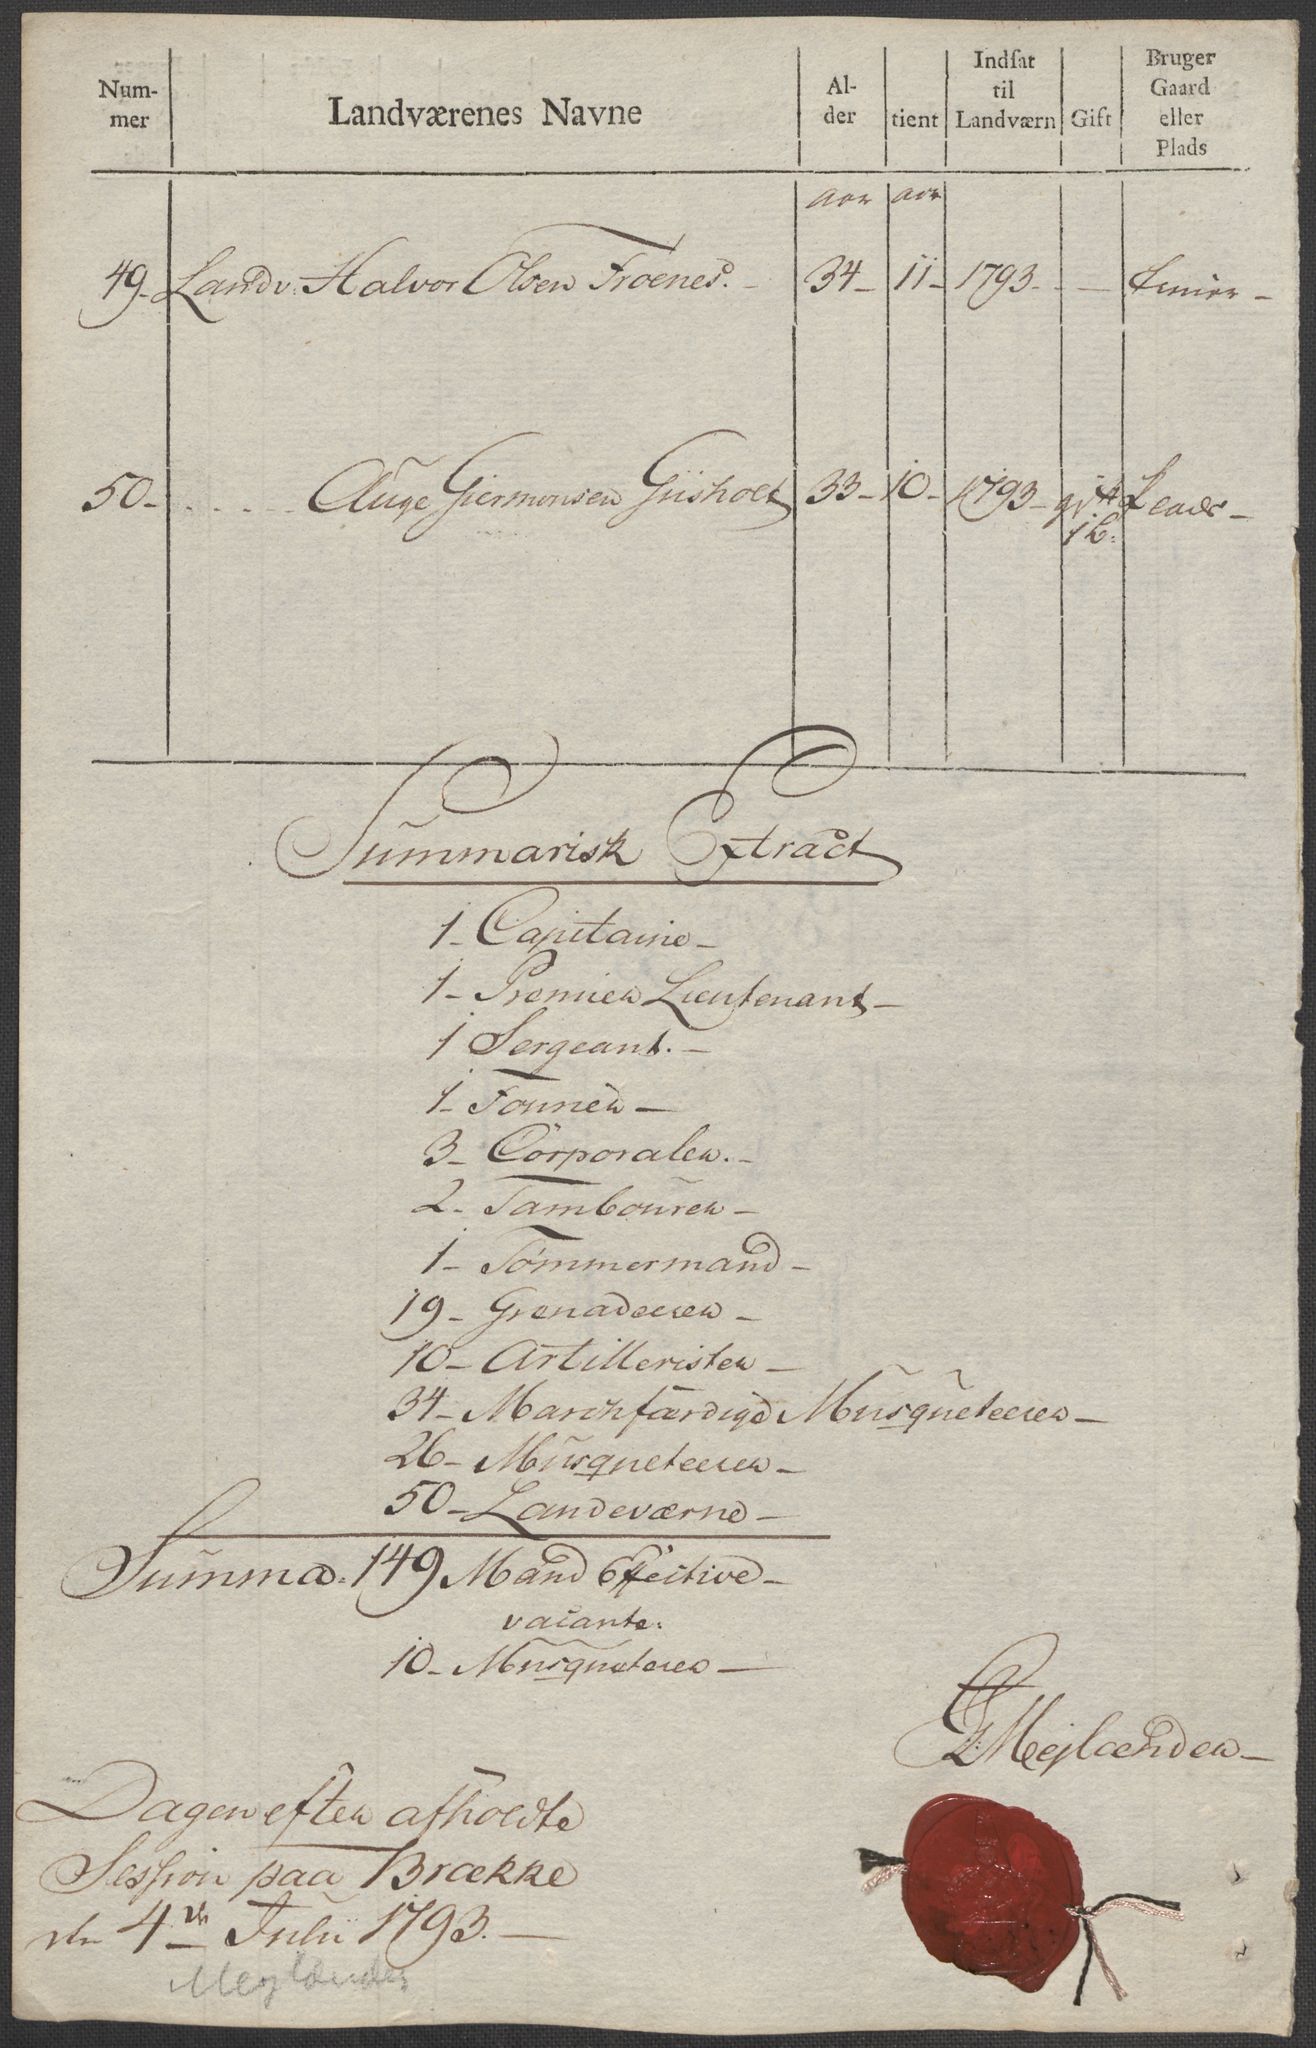 Num-
mer
Landværenes Navne
Al-
der
tient
Indsat
til
Landværn
Gift
Bruger
Gaard
eller
Plads
Aar Aar
49 - Landv: Halvor Olsen Froenes. - 34 - 11 - 1793 - -
50 - Auge Giermonsen Giisholt 33 - 10 - 1793 - gift
1 b:
Summarisk Extract
1 - Capitaine -
1 - Premier Lieutenant -
1 Sergeant. -
1 - Fourier -
3 - Corporaler. -
2 - Tambourer -
1 - Tømmermand -
19 - Grenadeerer -
10 - Artillerister -
34 - Marchfærdige Musqueteerer -
26 - Musqueteerer -
50 - Landeværne -
Summa. 149 Mand Effective -
vacante.
10 - Musqueteerer -
Mejlænder -
Dagen efter afholdte
Session paa Brække
den 4de Julii 1793. -
Meylænder